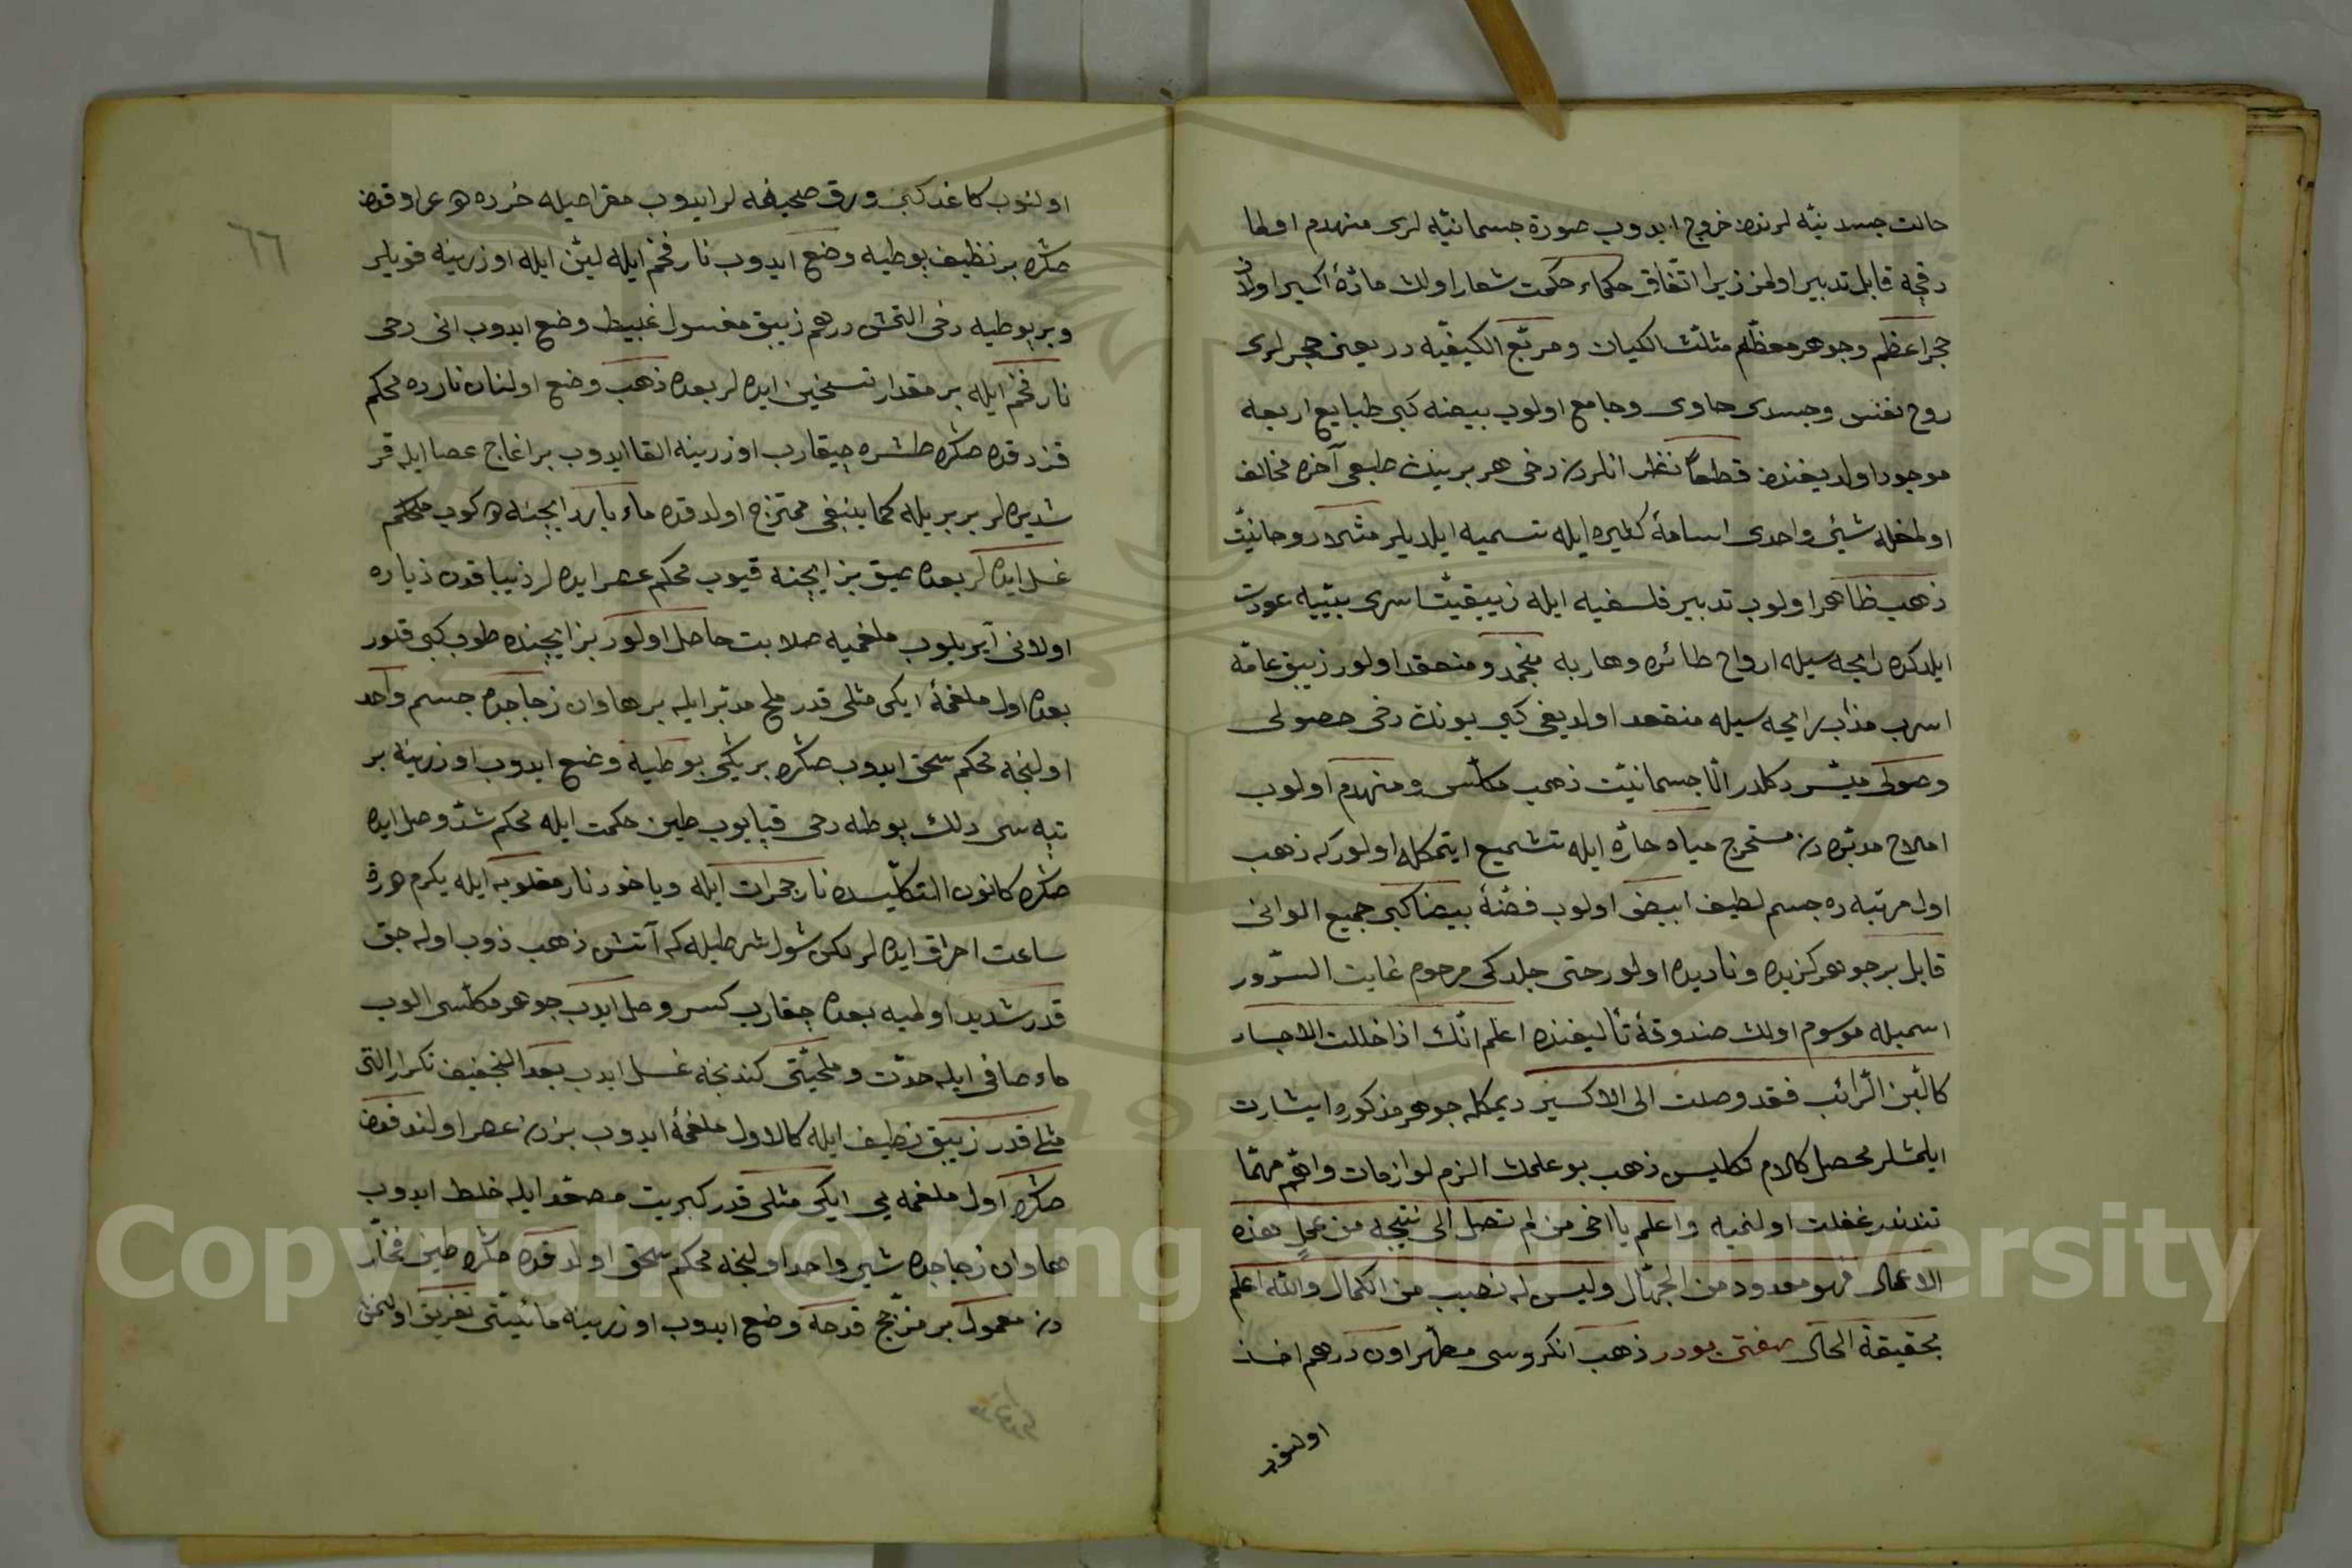 حالت جسدنیه لرندن خروج ایدوب صورة جسمانیه لری منهدم اولما
دقچه قابل تدبیر اولمز زیرا اتفاق حکماء حکمت شعار اولك مادۀ اکسیر اولان
حجر اعظم وجوهر معظم مثلث الکیان ومربع الکیفیه در یعنی حجر لری
روح نفس وجسدی حاوی وجامع اولوب بیضه کبی طبایع اربعه
موجود اولدیغندن قطعا نظر انلردن دخی هر برینك طبعی آخره مخالف
اولمغله شیٔ واحدی اسامۀ کثیره ایله تسمیه ایلدیلر مثلا روحانیت
ذهب ظاهر اولوب تدبیر فلسفیه ایله زیبقیت اسری بیتیه عودت
ایلدکده رایحه سیله ارواح طائره وهاربه منجمد ومنعقد اولور زیبق عامه
اسرب مذاب رایحه سیله منعقد اولدیغی کبی بونك دخی حصولی
وصولی میسر دکلدر الا جسمانیت ذهب مکلس ومنهدم اولوب
املاح مدبره دن مستخرج میاه حاره ایله تشمیع ایتمکله اولور که ذهب
اول مرتبه ده جسم لطیف ابیض اولوب فضۀ بیضا کبی جمیع الوانی
قابل بر جوهر کزیده ونادیده اولور حتی جلدکی مرحوم غایت السرور
اسمیله موسوم اولك صندوقۀ تألیفنده اعلم انك اذا خللت الاجساد
کاللبن الرائب فقد وصلت الی الاکسیر دیمکله جوهر مذکوره اشارت
ایلمشلر محصل کلام تکلیس ذهب بو علمك الزم لوازمات واهم مهما
تندندر غفلت اولنمیه واعلم یا اخی من لم تصل الی نتیجه من عمل هذه
الاعمال فهو معدود من الجهال ولیس له نصیب من الکمال والله اعلم
بحقیقة الحال صفتی بودر ذهب انکروسی مطهر اون درهم اخذ
اولنوب
٦٦
اولنوب کاغد کبی ورق صحیفه لر ایدوب مقراصیله خرده
صکره بر نظیف بوطیه وضع ایدوب نار فخم ایله لین ایله اوزرینه قویلر
وبر بوطیه دخی التمش درهم زیبق مغسول غبیط وضع ایدوب انی دخی
نار فخم ایله بر مقدار تسخین ایده لر بعده ذهب وضع اولنان نارده محکم
قزدقده صکره طشره چیقارب اوزرینه القا ایدوب بر اغاج عصا ایله قر
شدیره لر بر بریله کما ینبغی ممتزج اولدقده ماء بارد ایچنه دوکوب محکم
غسل ایده لر بعده عمیق بز ایچنه قیوب محکم عصر ایده لر ذیبا قدن زیاده
اولانی آیریلوب ملغمیه صلابت حاصل اولور بز ایچنده طوب کبی قلور
بعده اول ملغمۀ ایکی مثلی قدر ملح مدبر ایله بر هاوان زجاجده جسم واحد
اولنجه محکم سحق ایدوب صکره بر یکی بوطیه وضع ایدوب اوزرینه بر
تپه سی دلك بوطه دخی قپایوب طین حکمت ایله محکم شد وصل ایده
صکره کانون التکلیسده نار جمرات ایله ویاخود نار مقلوبه ایله یکرم دورة
ساعت احراق ایده لر لکن شول شرطیله که آتش ذهب ذوب اوله جق
قدر شدید اولمیه بعده چقارب کسر وصل ایدب جوهر مکلسی الوب
ماء صافی ایله حدت وملحیتی کندنجه غسل ایدب بعد التجفیف تکرار التی
مثلی قدر زیبق نظیف ایله کالاول ملغمۀ ایدوب بزدن عصر اولندقدن
صکره اول ملغمه یی ایکی مثلی قدر کبریت مصعد ایله خلط ایدوب
هاوان زجاجده شیٔ واحد اولنجه محکم سحق اولدقده صکره طین فخار
دن معمول بر مزجج قدحه وضع ایدوب اوزرینه مائیتی تفریق اولنمش